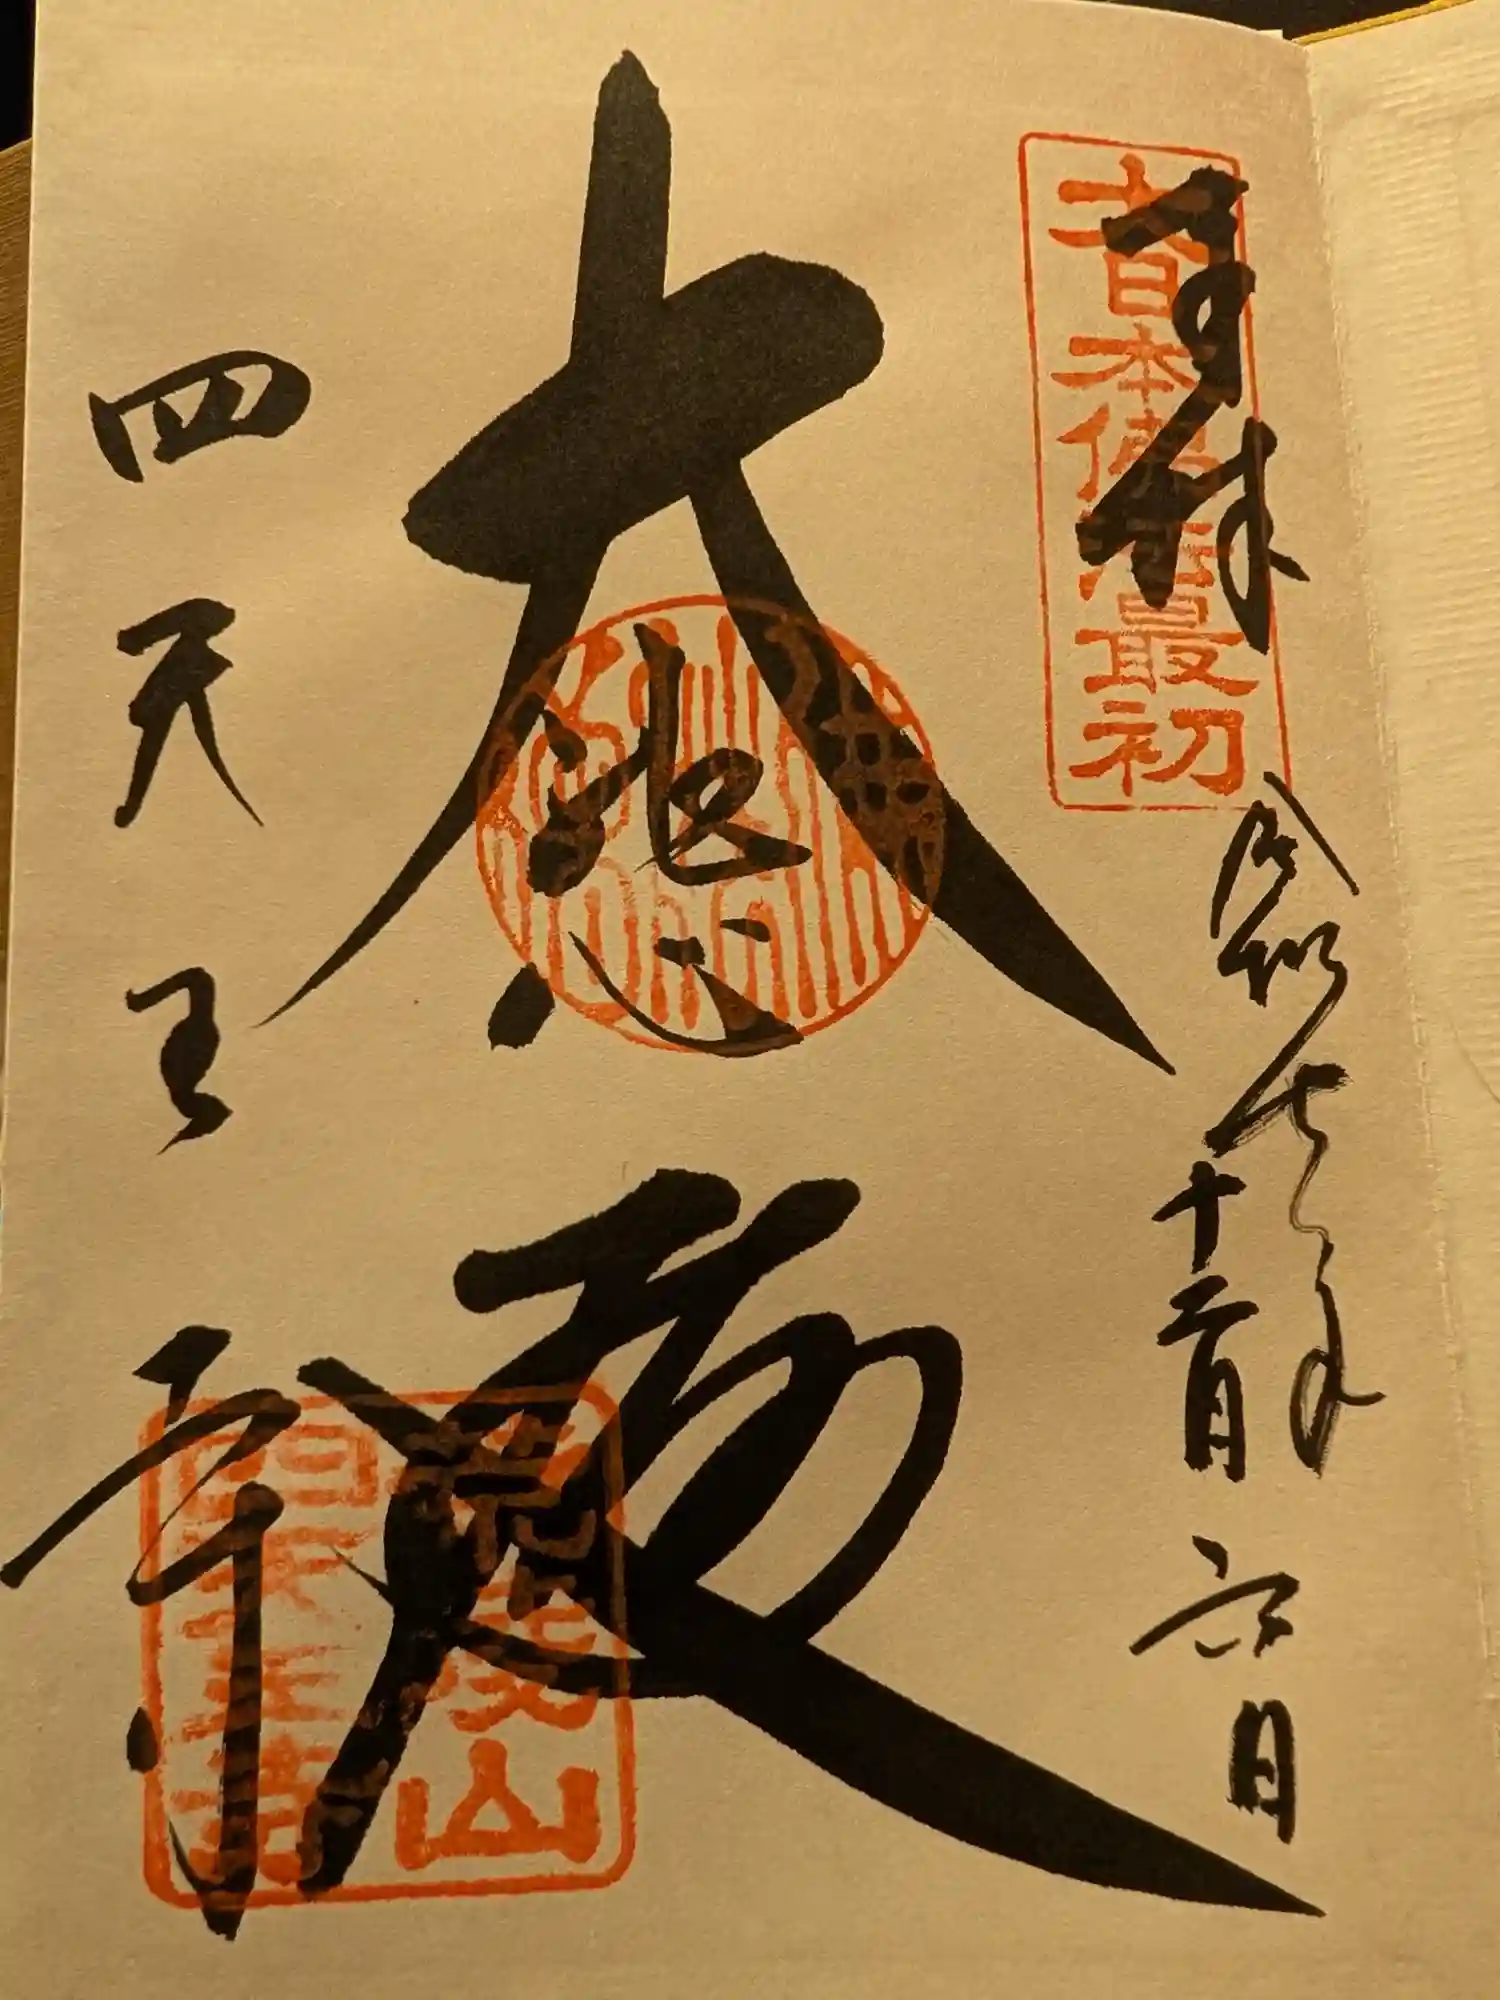 奉拝
大日本佛法最初
令和七年
十二月六日
大悲殿
四天王寺
荒陵山
四天王寺